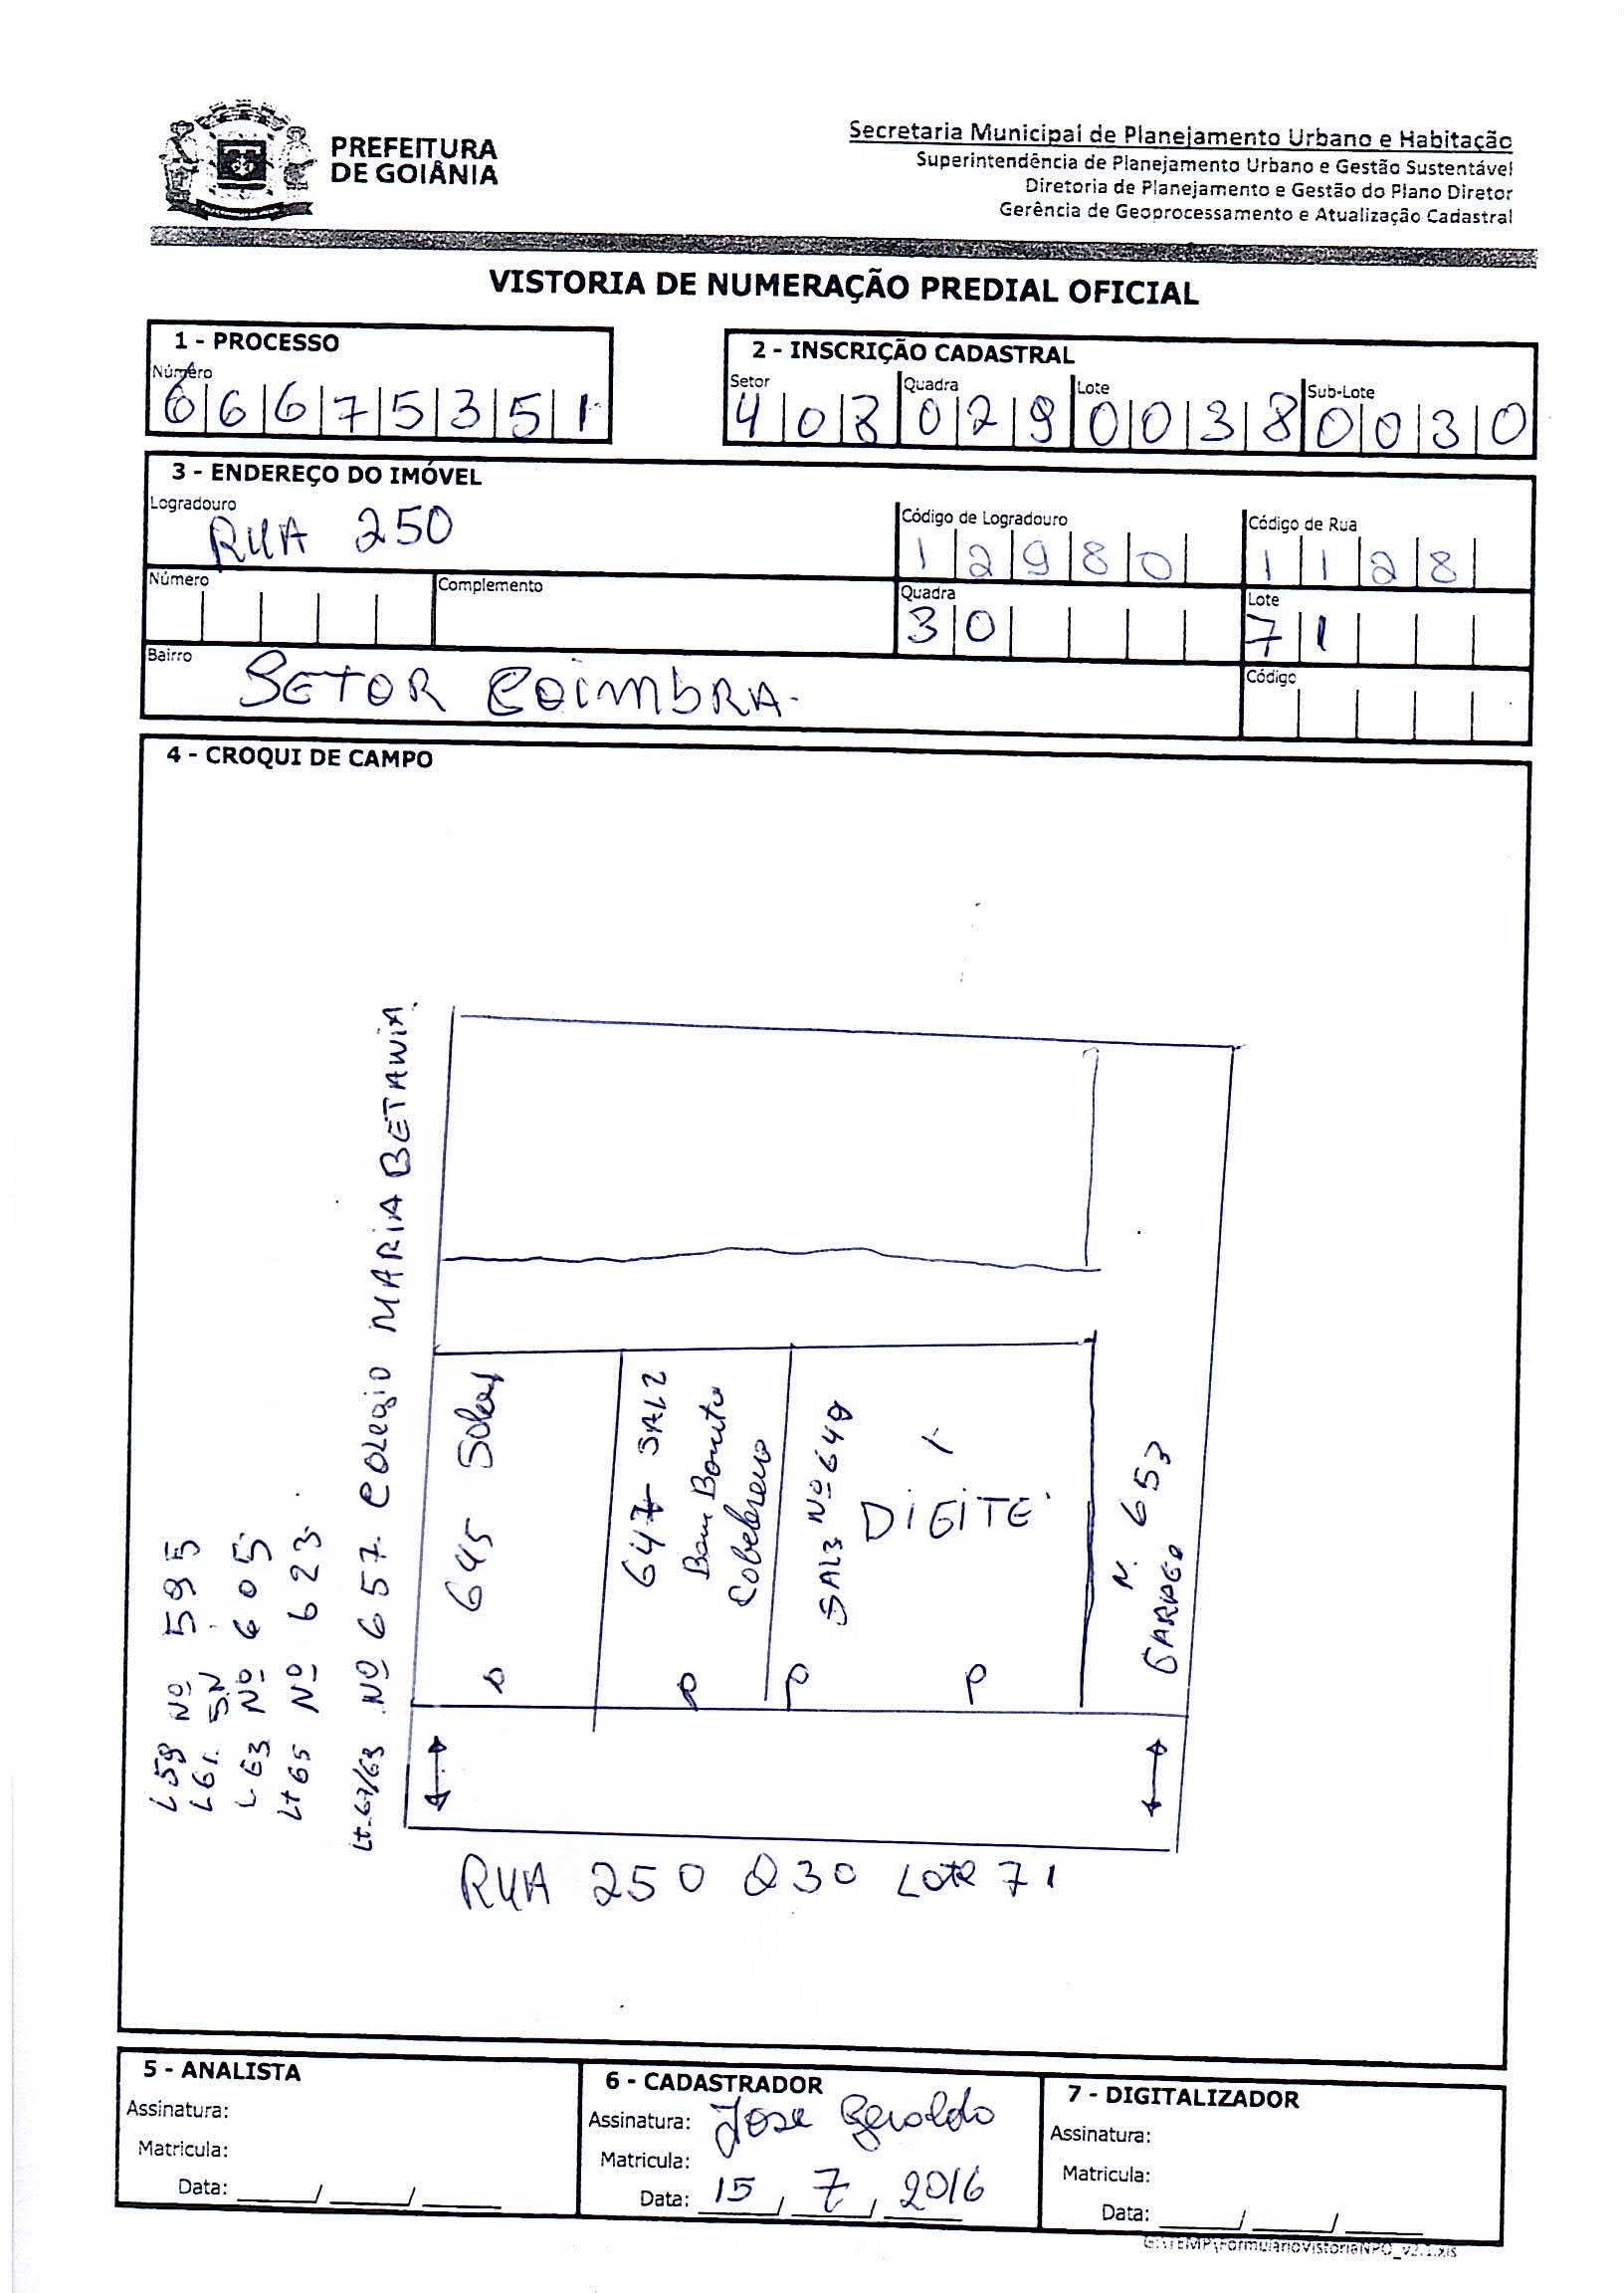 PREFEITURA
DE GOIÂNIA
Secretaria Municipal de Planejamento Urbano e Habitação
Superintendência de Planejamento Urbano e Gestão Sustentável
Diretoria de Planejamento e Gestão do Plano Diretor
Gerência de Geoprocessamento e Atualização Cadastral
VISTORIA DE NUMERAÇÃO PREDIAL OFICIAL
1 - PROCESSO
Número
66675351
2 - INSCRIÇÃO CADASTRAL
Setor Quadra Lote Sub-Lote
403 029 0038 0030
3 - ENDEREÇO DO IMÓVEL
Logradouro
RUA 250
Código de Logradouro
12980
Código de Rua
1128
Número
Complemento
Quadra
30
Lote
71
Bairro
SETOR COIMBRA
Código
4 - CROQUI DE CAMPO
L 59 Nº 595
L 61. SN
L 63 Nº 605
Lt 65 Nº 623
Lt-67/69 Nº 657 COLEGIO MARIA BETANIA
645
647 SAL 2
Bom Bonito
SAL3 Nº 649
DIGITE
N. 653
RUA 250 Q 30 Lote 71
5 - ANALISTA
Assinatura:
Matricula:
Data: / /
6 - CADASTRADOR
Assinatura: Jose Geraldo
Matricula:
Data: 15 / 7 / 2016
7 - DIGITALIZADOR
Assinatura:
Matricula:
Data: / /
G:\TEMP\FormularioVistoriaNPO_v2.1.xls